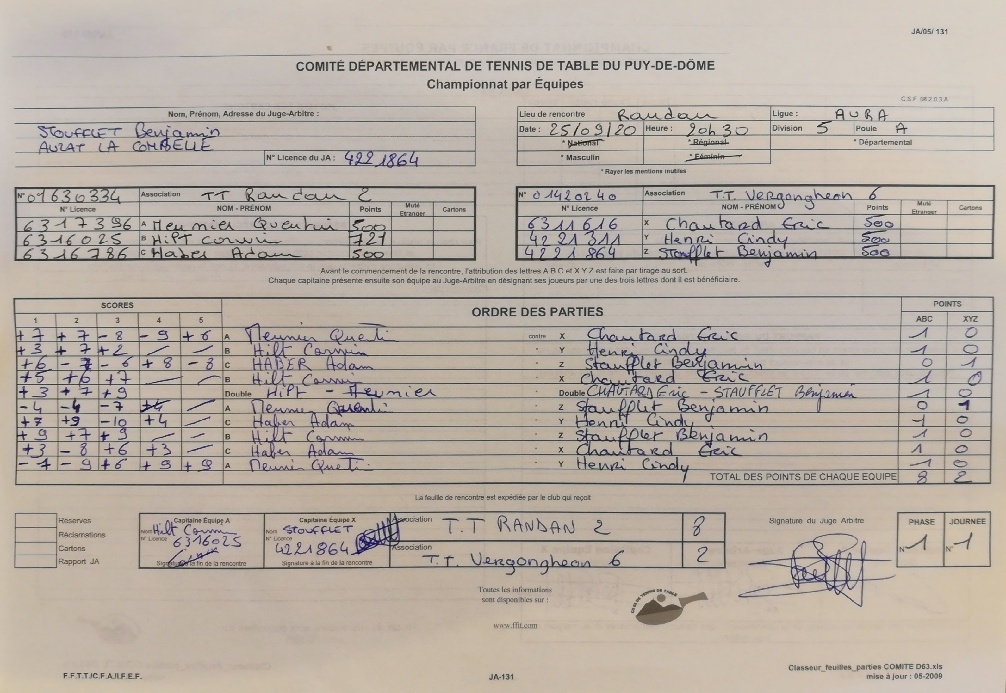 JA/05/ 131
COMITÉ DÉPARTEMENTAL DE TENNIS DE TABLE DU PUY-DE-DÔME
Championnat par Équipes
Nom, Prénom, Adresse du Juge-Arbitre :
STOUFFLET Benjamin
AUZAT LA COMBELLE
N° Licence du JA : 4221864
Lieu de rencontre Randan Ligue : AURA
Date : 25/09/20 Heure : 20h30 Division 5 Poule A
* National * Régional * Départemental
* Masculin * Féminin
* Rayer les mentions inutiles
N° 01630334 Association TT Randan 2
N° Licence NOM - PRÉNOM Points Muté Etranger Cartons
6317396 A Meunier Quentin 500
6316025 B Hilt Corwin 721
6316786 C Haber Adam 500
N° 01420240 Association T.T. Vergongheon 6
N° Licence NOM - PRÉNOM Points Muté Etranger Cartons
6311616 X Chautard Eric 500
4221311 Y Henri Cindy 500
4221864 Z Stoufflet Benjamin 500
Avant le commencement de la rencontre, l'attribution des lettres A B C et X Y Z est faite par tirage au sort.
Chaque capitaine présente ensuite son équipe au Juge-Arbitre en désignant ses joueurs par une des trois lettres dont il est bénéficiaire.
SCORES ORDRE DES PARTIES POINTS
1 2 3 4 5 ABC XYZ
+7 +7 -8 -9 +6 A Meunier Quenti contre X Chautard Eric 1 0
+3 +7 +2 B Hilt Corwin Y Henri Cindy 1 0
+6 -7 -6 +8 -8 C HABER Adam Z Stoufflet Benjamin 0 1
+5 +6 +7 B Hilt Corwin X Chautard Eric 1 0
+3 +7 +9 Double Hilt - Meunier Double CHAUTARD Eric - STAUFFLET Benjamin 1 0
-4 -4 -7 A Meunier Quentin Z Staufflet Benjamin 0 1
+7 +9 -10 +4 C Haber Adam Y Henri Cindy 1 0
+9 +7 +9 B Hilt Corwin Z Stoufflet Benjamin 1 0
+3 -8 +6 +3 C Haber Adam X Chautard Eric 1 0
-7 -9 +6 +9 +9 A Meunier Quenti Y Henri Cindy 1 0
TOTAL DES POINTS DE CHAQUE EQUIPE 8 2
La feuille de rencontre est expédiée par le club qui reçoit
Réserves
Réclamations
Cartons
Rapport JA
Capitaine Équipe A
Nom Hilt Corwin
N° Licence 6316025
Signature à la fin de la rencontre
Capitaine Équipe X
Nom STOUFFLET
N° Licence 4221864
Signature à la fin de la rencontre
Association T.T RANDAN 2 8
Association T.T. Vergongheon 6 2
Signature du Juge Arbitre
PHASE JOURNÉE
N° 1 N° 1
Toutes les informations
sont disponibles sur :
www.fftt.com
F.F.T.T./C.F.A./I.F.E.F.
JA-131
Classeur_feuilles_parties COMITE D63.xls
mise à jour : 05-2009